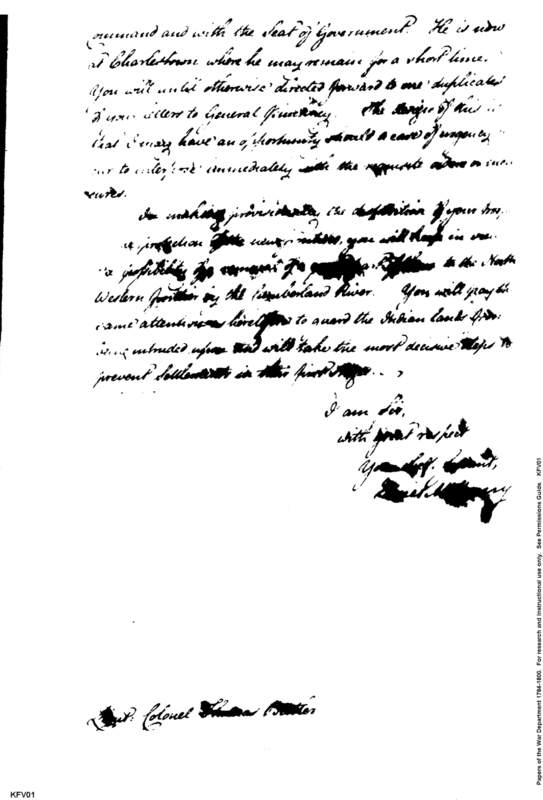 command and with the Seat of Government. He is now
at Charlestown where he may remain for a short time.
You will until otherwise directed forward to me duplicates
of your letters to General Pinckney. The design of this is
that I may have an opportunity should a case of urgency
occur to interpose immediately with the requisite orders or mea
sures.
In making the disposition of your
protection of the new you will have in
a possibility of a removal of a part of them to the North
Western frontier by the Cumberland River. You will pay the
same attention as heretofore to guard the Indian lands from
being intruded upon and will take the most decisive steps to
prevent Settlements in their first stages.
I am Sir,
with great respect
Your Servant,
James McHenry
Lieut. Colonel Thomas Butler
KFV01
Papers of the War Department 1784-1800. For research and instructional use only. See Permissions Guide. KFV01